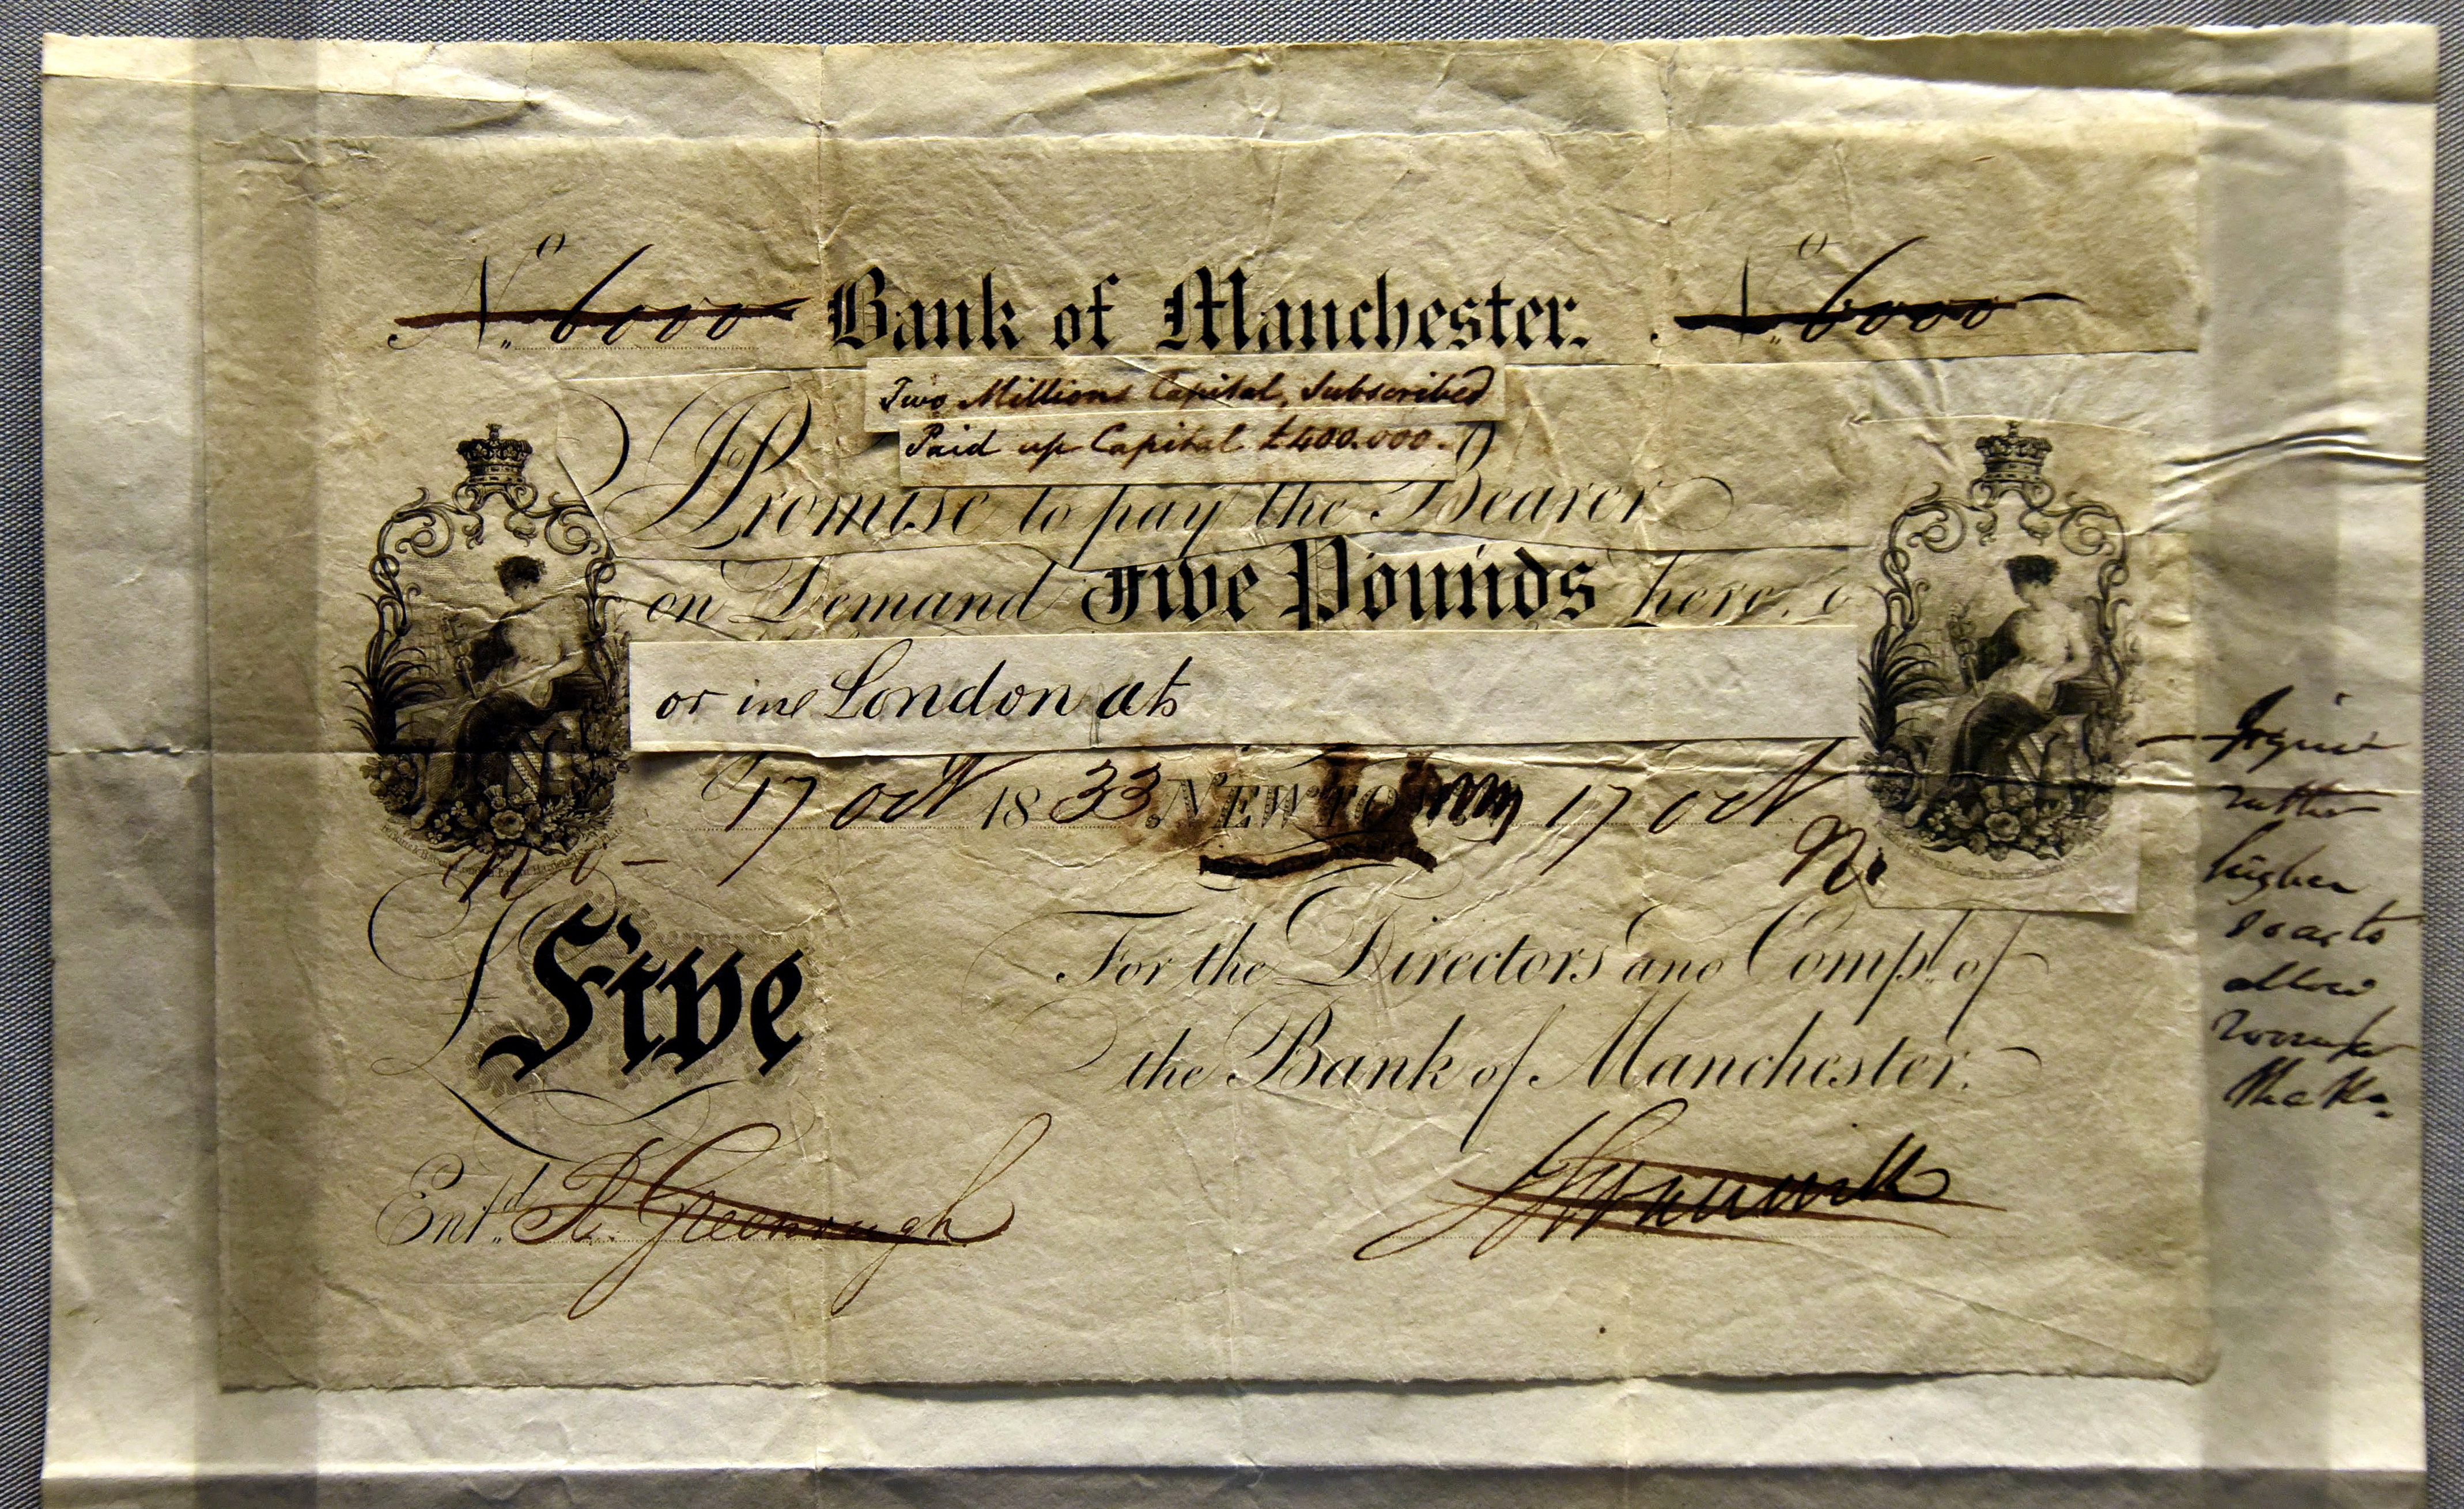 No 6000 Bank of Manchester. No 6000
Two Millions Capital, Subscribed
Paid up Capital £400.000.
Promise to pay the Bearer
on Demand Five Pounds here, o
or in London at
17 Oct 1833 NEWTOWN 17 Oct
No
£ Five
For the Directors and Compy. of
the Bank of Manchester.
Entd. R. Greenough
rather
higher
so as to
allow
room for
the No.